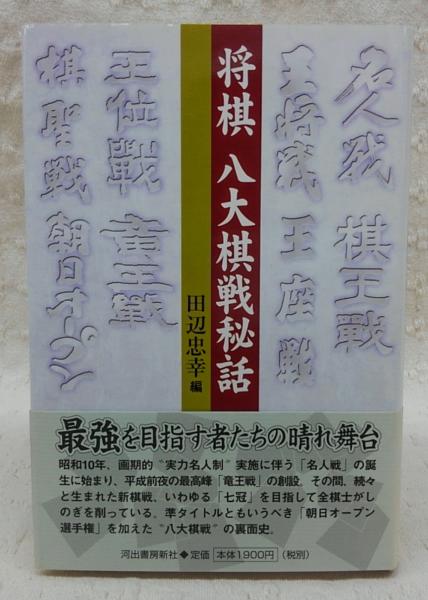 名人戦
棋王戰
王将戦
王座戦
将棋 八大棋戦秘話
田辺忠幸 編
王位戰
竜王戰
棋聖戦
朝日オープン
最強を目指す者たちの晴れ舞台
昭和10年、画期的〝実力名人制〟実施に伴う「名人戦」の誕
生に始まり、平成前夜の最高峰「竜王戦」の創設。その間、続々
と生まれた新棋戦、いわゆる「七冠」を目指して全棋士がし
のぎを削っている。準タイトルともいうべき「朝日オープン
選手権」を加えた〝八大棋戦〟の裏面史。
河出書房新社◆定価 本体1,900円(税別)